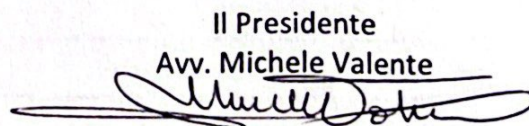 Il Presidente
Avv. Michele Valente